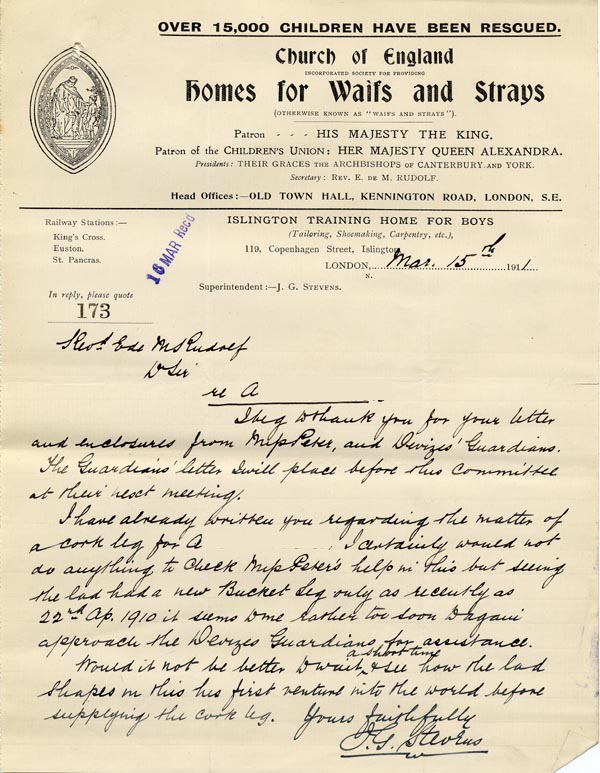 OVER 15,000 CHILDREN HAVE BEEN RESCUED.
Church of England
INCORPORATED SOCIETY FOR PROVIDING
Homes for Waifs and Strays
(OTHERWISE KNOWN AS "WAIFS AND STRAYS").
Patron - - - HIS MAJESTY THE KING.
Patron of the CHILDREN'S UNION: HER MAJESTY QUEEN ALEXANDRA.
Presidents: THEIR GRACES THE ARCHBISHOPS OF CANTERBURY AND YORK.
Secretary: REV. E. DE M. RUDOLF.
Head Offices:—OLD TOWN HALL, KENNINGTON ROAD, LONDON, S.E.
Railway Stations:—
King's Cross.
Euston.
St. Pancras.
16 MAR Recd
In reply, please quote
173
ISLINGTON TRAINING HOME FOR BOYS
(Tailoring, Shoemaking, Carpentry, etc.),
119, Copenhagen Street, Islington,
LONDON, Mar. 15th 1911.
N.
Superintendent:—J. G. STEVENS.
Revd E de M Rudolf
Dr Sir
re A
I beg to thank you for your letter
and enclosures from Miss Peter, and Devizes' Guardians.
The Guardians' letter I will place before this Committee
at their next meeting.
I have already written you regarding the matter of
a cork leg for A . I certainly would not
do anything to check Miss Peter's help in this but seeing
the lad had a new Bucket leg only as recently as
22nd Ap. 1910 it seems to me rather too soon to again
approach the Devizes Guardians for assistance.
Would it not be better to wait a short time & see how the lad
shapes in this his first venture into the world before
supplying the cork leg. Yours faithfully
J. G. Stevens